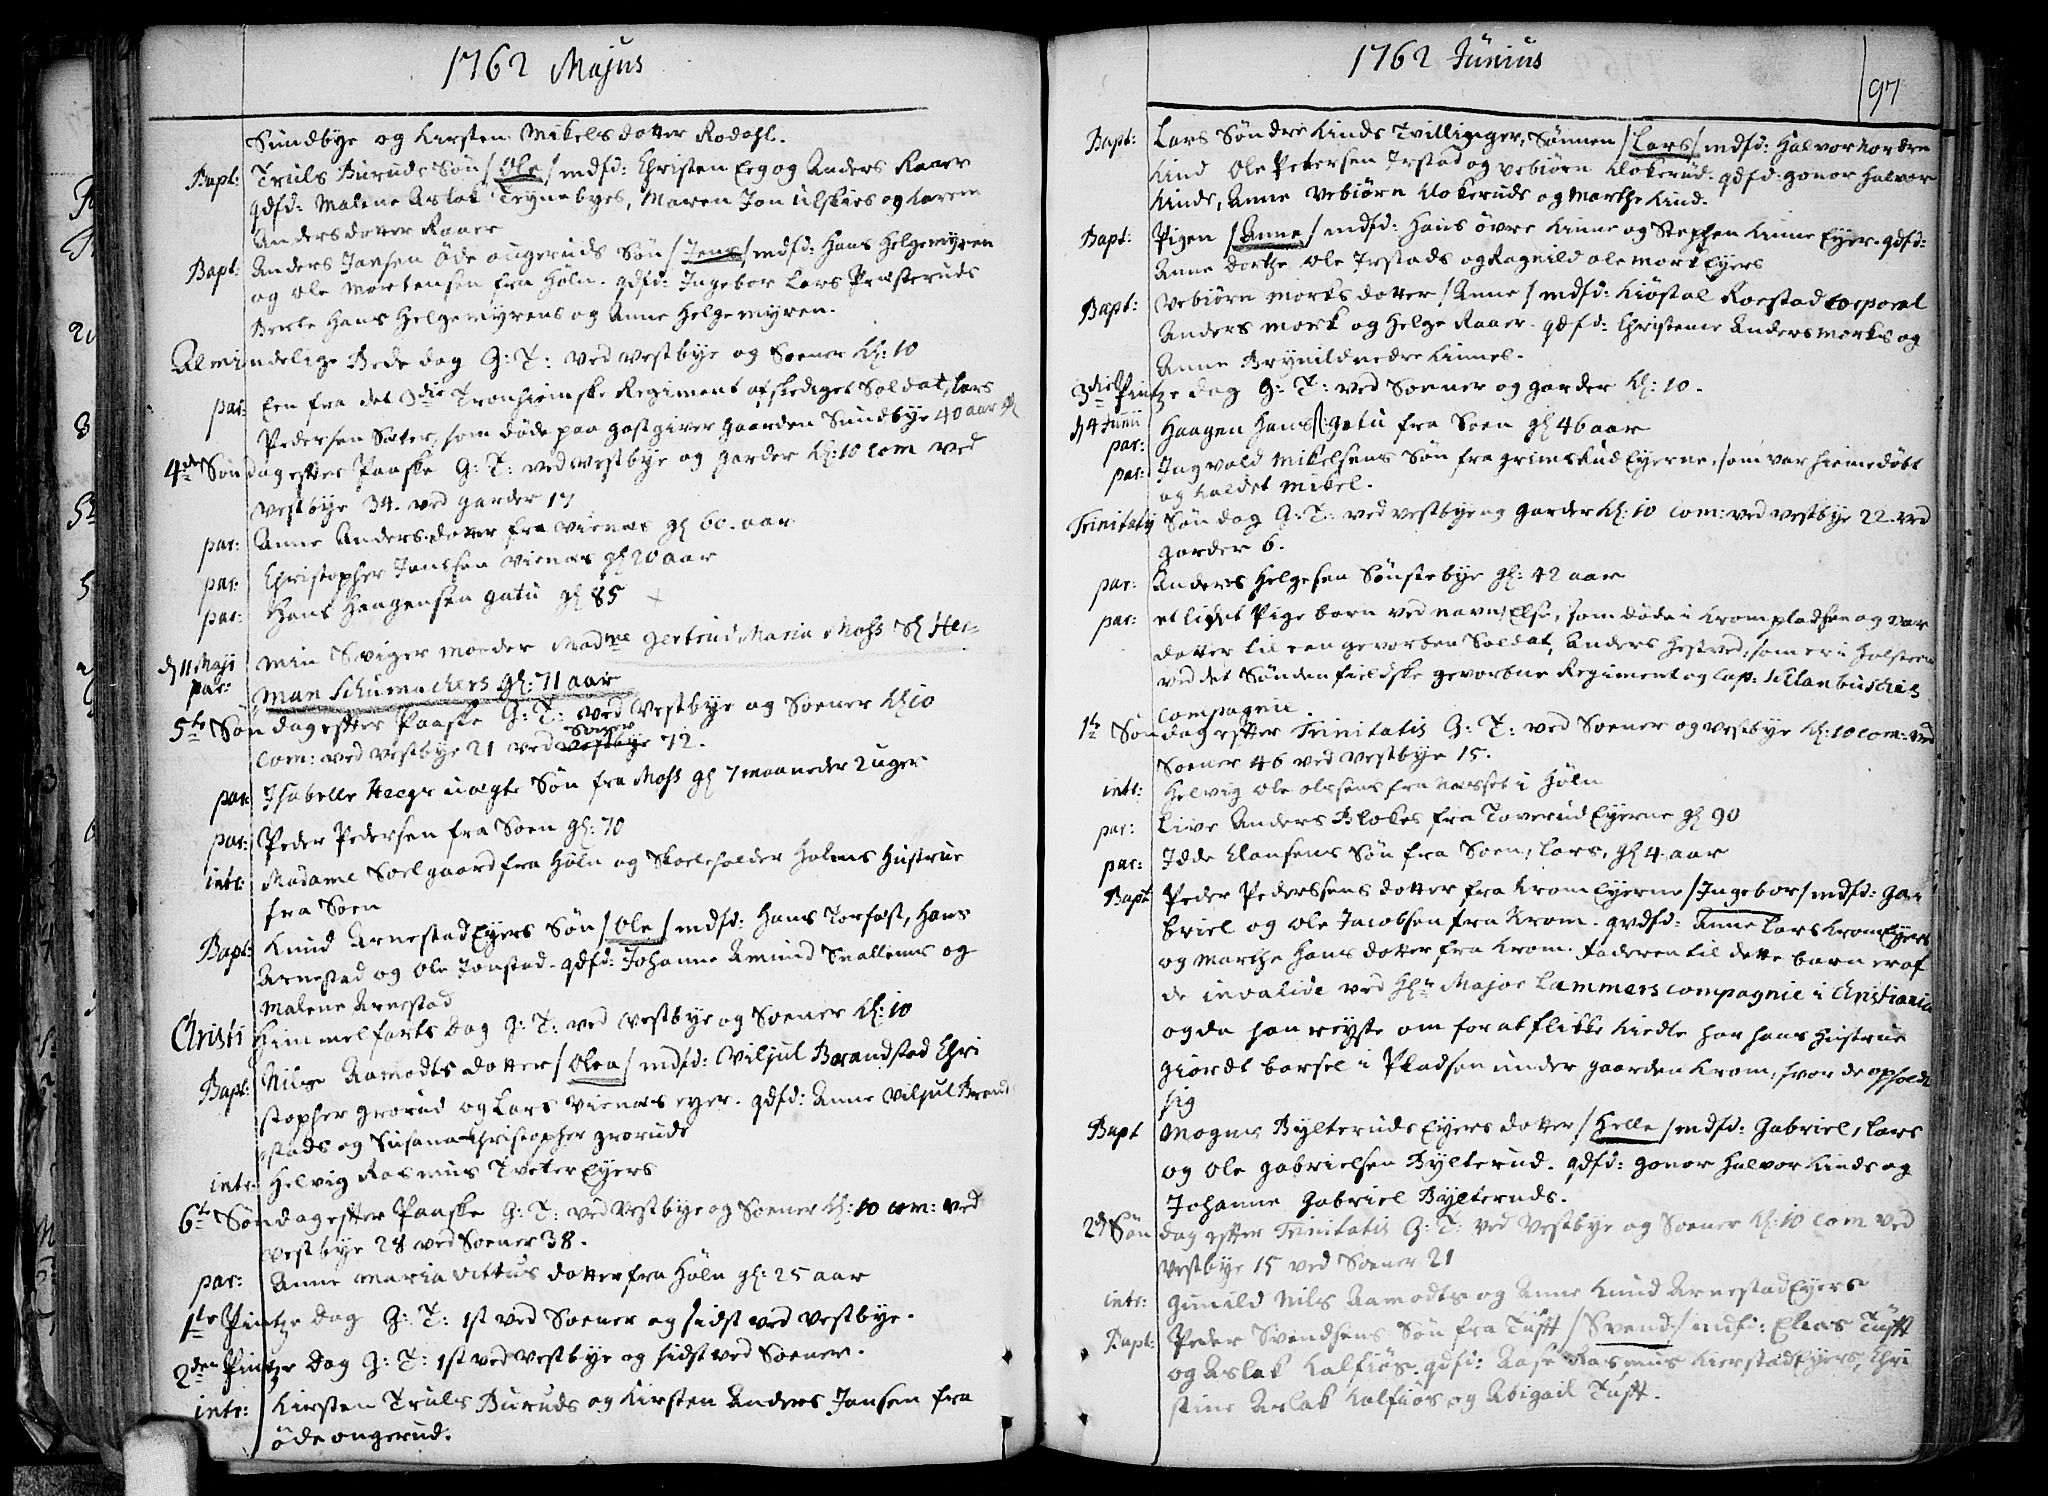 1762 Majus
Sundbye og Kirsten Mikelsdotter Rodahl.
Bapt: Truls Buruds Søn /Ole/ mdfd: Christen Eeg og Anders Raaer
qdfd: Malene Aslak Tegnebyes, Maren Jon Ulskies og Karen
Andersdotter Raaer
Bapt: Anders Jansen Øde ongeruds Søn /Jens/ mdfd: Hans Helgemyren
og Ole Mortensen fra Høln. qdfd: Ingebor Lars Præsteruds
Berte Hans Helgemyrens og Anne Helgemyren.
Almindelige Bede dag G: T: ved Vestbye og Soener Kl: 10
par: Een fra det 3die Tronhiemske Regiment afskediget Soldat, Lars
Pedersen Sæter, som døde paa gastgiver gaarden Sundbye 40 aar gl
4de Søndag efter Paaske G: T: ved Vestbye og Garder Kl: 10 com ved
Vestbye 34. ved Garder 17
par: Anne Andersdotter fra Vienas gl 60. aar
par: Christopher Jonssen Vienas gl 20 aar
par: Hans Haagensen gatu gl 85
d 11 Maji Min Sviger moder Madme Gertrud Maria Moss Sl Her=
par: man Schumachers gl: 71 aar
5te Søndag efter Paaske G: T: ved Vestbye og Soener Kl 10
com: ved Vestbye 21 ved Vestbye Soner 72.
par: Isabelle uægte Søn fra Moss gl 7 maaneder 2 uger
par: Peder Pedersen fra Soen gl: 70
intr: Madame Soelgaard fra Høln og Skoleholder Holms Hustrue
fra Soen
Bapt: Knud Arnestad Eyers Søn /Ole/ mdfd: Hans Torfast, Hans
Arnestad og Ole Jonstad. qdfd: Johanne Amund Snallems og
Malene Arnestad
Christi Himmelfarts Dag G: T: ved Vestbye og Soener Kl: 10
Bapt: Nils Aamodts dotter /Olea/ mdfd: Viljul Brandstad Chri
stopher Grorud og Lars Vienas eyer. qdfd: Anne Viljul Brand
stads og Susana Christopher Groruds
intr: Helvig Rasmus Tveter Eyers
6te Søndag efter Paaske G: T: ved Vestbye og Soener Kl: 10 com: ved
Vestbye 28 ved Soener 38.
par: Anne Maria Vittus dotter fra Høln gl: 25 aar
1te Pintze Dag G: T: 1st ved Soener og sidst ved Vestbye.
2den Pintze Dag G: T: 1st ved Vestbye og sidst ved Soener.
intr: Kirsten Truls Buruds og Kirsten Anders Jansen fra
Øde ongerud.
1762 Junius
97
Bapt: Lars Søndre Kinds Tvillinger, Sønnen /Lars/ mdfd: Halvor Nordre
Kind Ole Petersen Irstad og Vebiørn Klokerud. qdfd: Gonor Halvor
Kinds, Anne Vebiørn Klokeruds og Marthe Kind.
Bapt: Pigen /Anne/ mdfd: Hans Øvre Kinne og Stephen Kinne Eyer. qdfd:
Anne Dorthe Ole Irstads og Ragnild Ole Mork Eyers
Bapt: Vebiørn Morks dotter /Anne/ mdfd: Kiøstal Roestad Corporal
Anders Mork og Helge Raaer. qdfd: Christene Anders Morks og
Anne Brynild Nedre Kinnes.
3die Pintze dag G: T: ved Soener og Garder Kl: 10.
d 4 Junii Haagen Hans: gatu fra Soen gl 46 aar
par:
par: Ingvold Mikelsens Søn fra Grimskud Eyerne, som var hiemedøbt
og kaldet Mikel.
Trinitatis Søndag G: T: ved Vestbye og Garder Kl: 10 com: ved Vestbye 22. ved
Garder 6.
par: Anders Helgesen Sønstebye gl: 42 aar
par: et lidet Pige barn ved navn, Else, som døde i Krompladsen og var
dotter til een gevorben Soldat, Anders Hestved, som er i Holsteen
ved det Søndenfieldske gevorbne Regiment og Cap: Klanbusches
Compagnie.
1te Søndag efter Trinitatis G: T: ved Soener og Vestbye Kl: 10 com: ved
Soener 46 ved Vestbye 15.
intr: Helvig Ole Olssens fra Nasset i Høln
par: Live Anders Blokes fra Toverud Eyerne gl 90
par: Idde Clausens Søn fra Soen, Lars, gl 4 aar
Bapt Peder Pederssens dotter fra Krom Eyerne /Ingebor/ mdfd: Ga
briel og Ole Jacobsen fra Krom. qvdfd: Anne Lars Krom Eyers
og Marthe Hans dotter fra Krom. Faderen til dette barn er af
de invalide ved Hr Major Lammers Compagnie i Christiania
og da han reyste om for at flikke Kiedle har hans Hustrue
giordt barsel i Pladsen under gaarden Krom, hvor de opholdt
sig
Bapt Mogns Bylteruds Eyers dotter /Helle/ mdfd: Gabriel, Lars
og Ole Gabrielsen Bylterud. qdfd: Gonor Halvor Kinds og
Johanne Gabriel Bylteruds.
2d Søndag efter Trinitatis G: T: ved Vestbye og Soener Kl: 10 com ved
Vestbye 15 ved Soener 21
intr: Gunild Nils Aamodts og Anne Knud Arnestad Eyers
Bapt: Peder Svendsens Søn fra Tufft /Svend/ mdfd: Elias Tufft
og Aslak Kalfiøs. qdfd: Aase Rasmus Kierstad Eyers, Chri
stine Aslak Kalfiøs og Abigail Tufft.